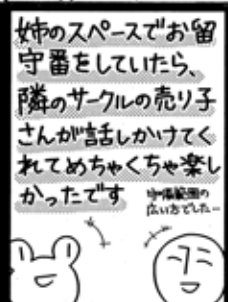 姉のスペースでお留
守番をしていたら、
隣のサークルの売り子
さんが話しかけてく
れてめちゃくちゃ楽し
かったです
守備範囲の
広い方でした…